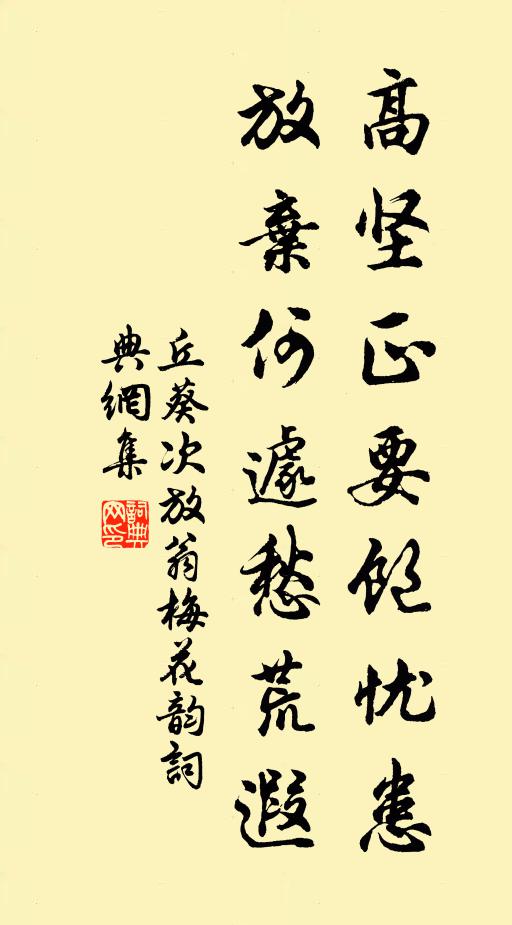 高坚正要飽忧患
放棄何遽愁荒遐
丘葵次放翁梅花韵詞
典網集
詞典
网印